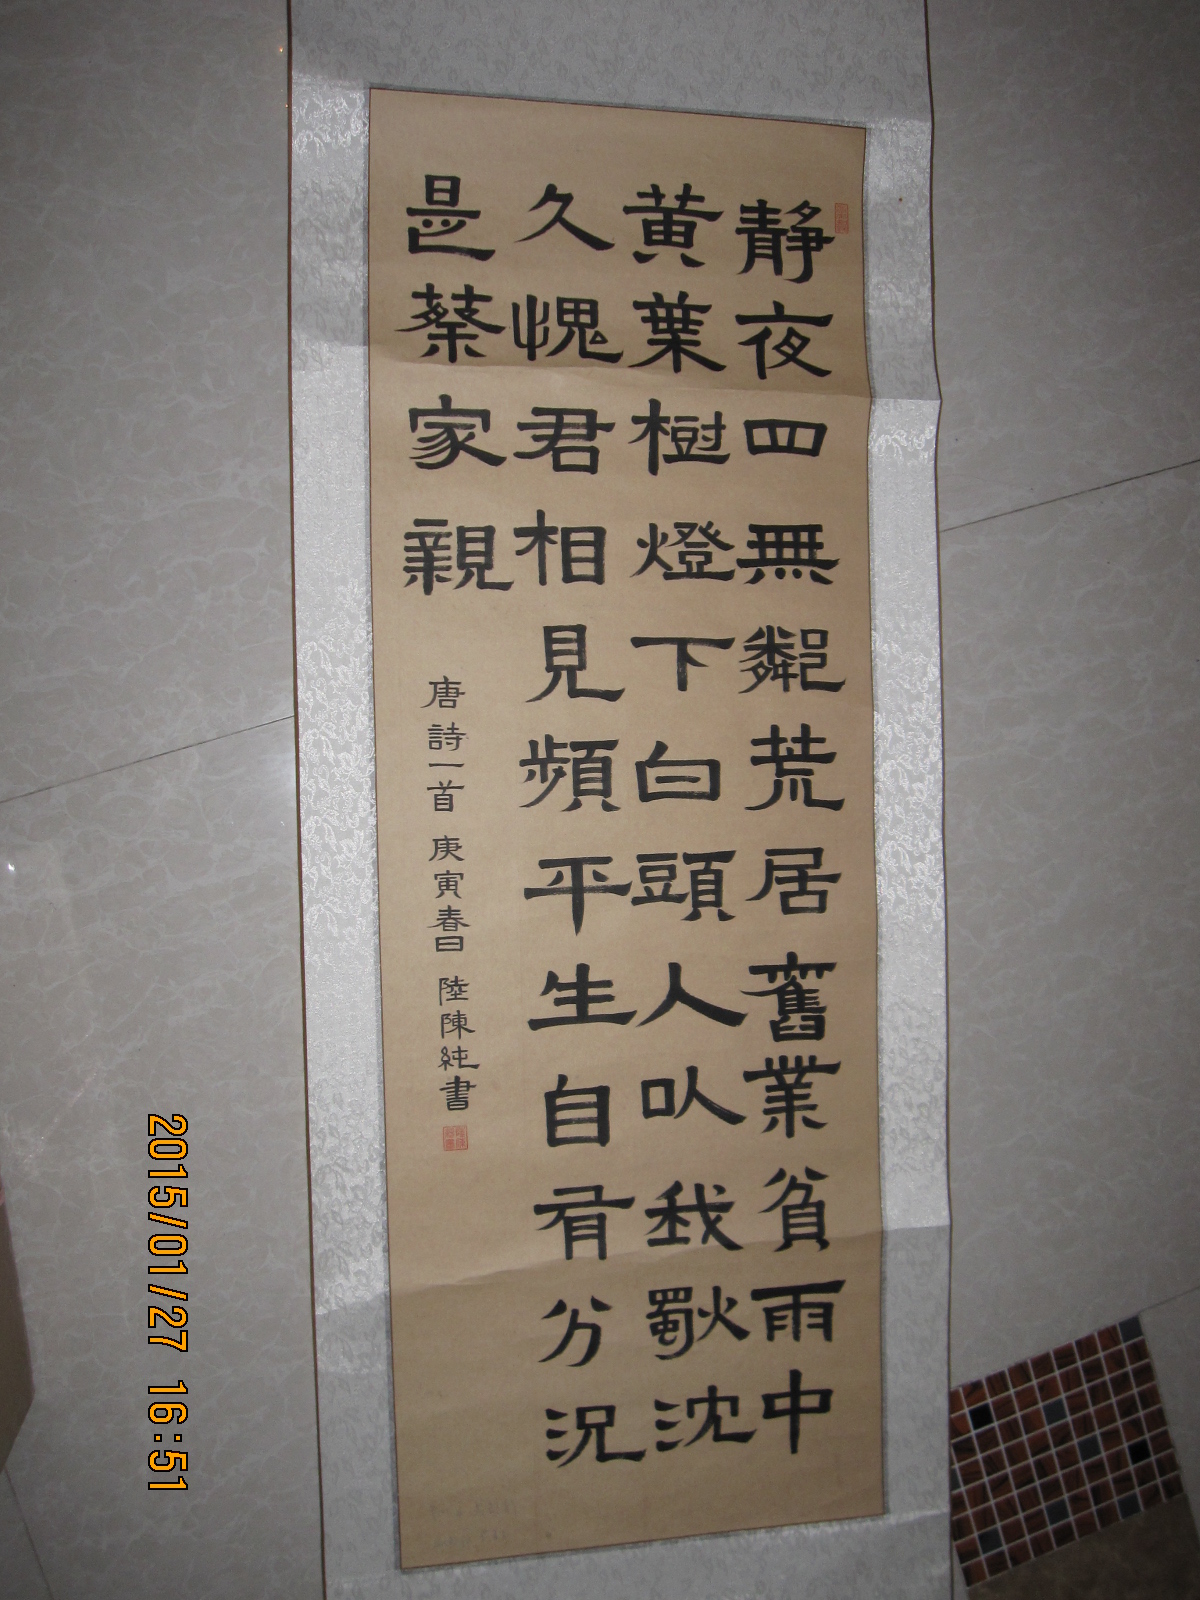 靜夜四無鄰荒居舊業貧雨中
黄葉樹燈下白頭人以我獨沈
久愧君相見頻平生自有分況
是蔡家親
唐詩一首 庚寅春日 陸陳純書
2015/01/27 16:51